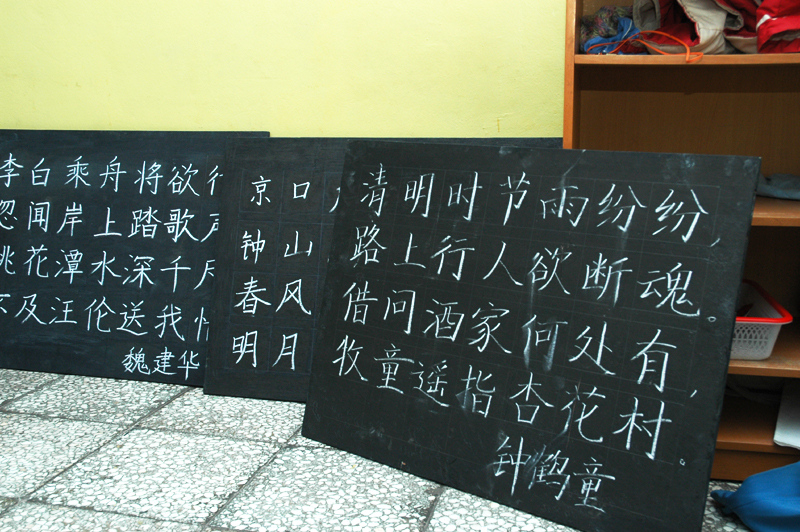 李白乘舟将欲
忽闻岸上踏歌
花潭水深千
及汪伦送我
魏建华
京口
钟山
春风
明月
清明时节雨纷纷,
路上行人欲断魂。
借问酒家何处有,
牧童遥指杏花村。
钟鹤童